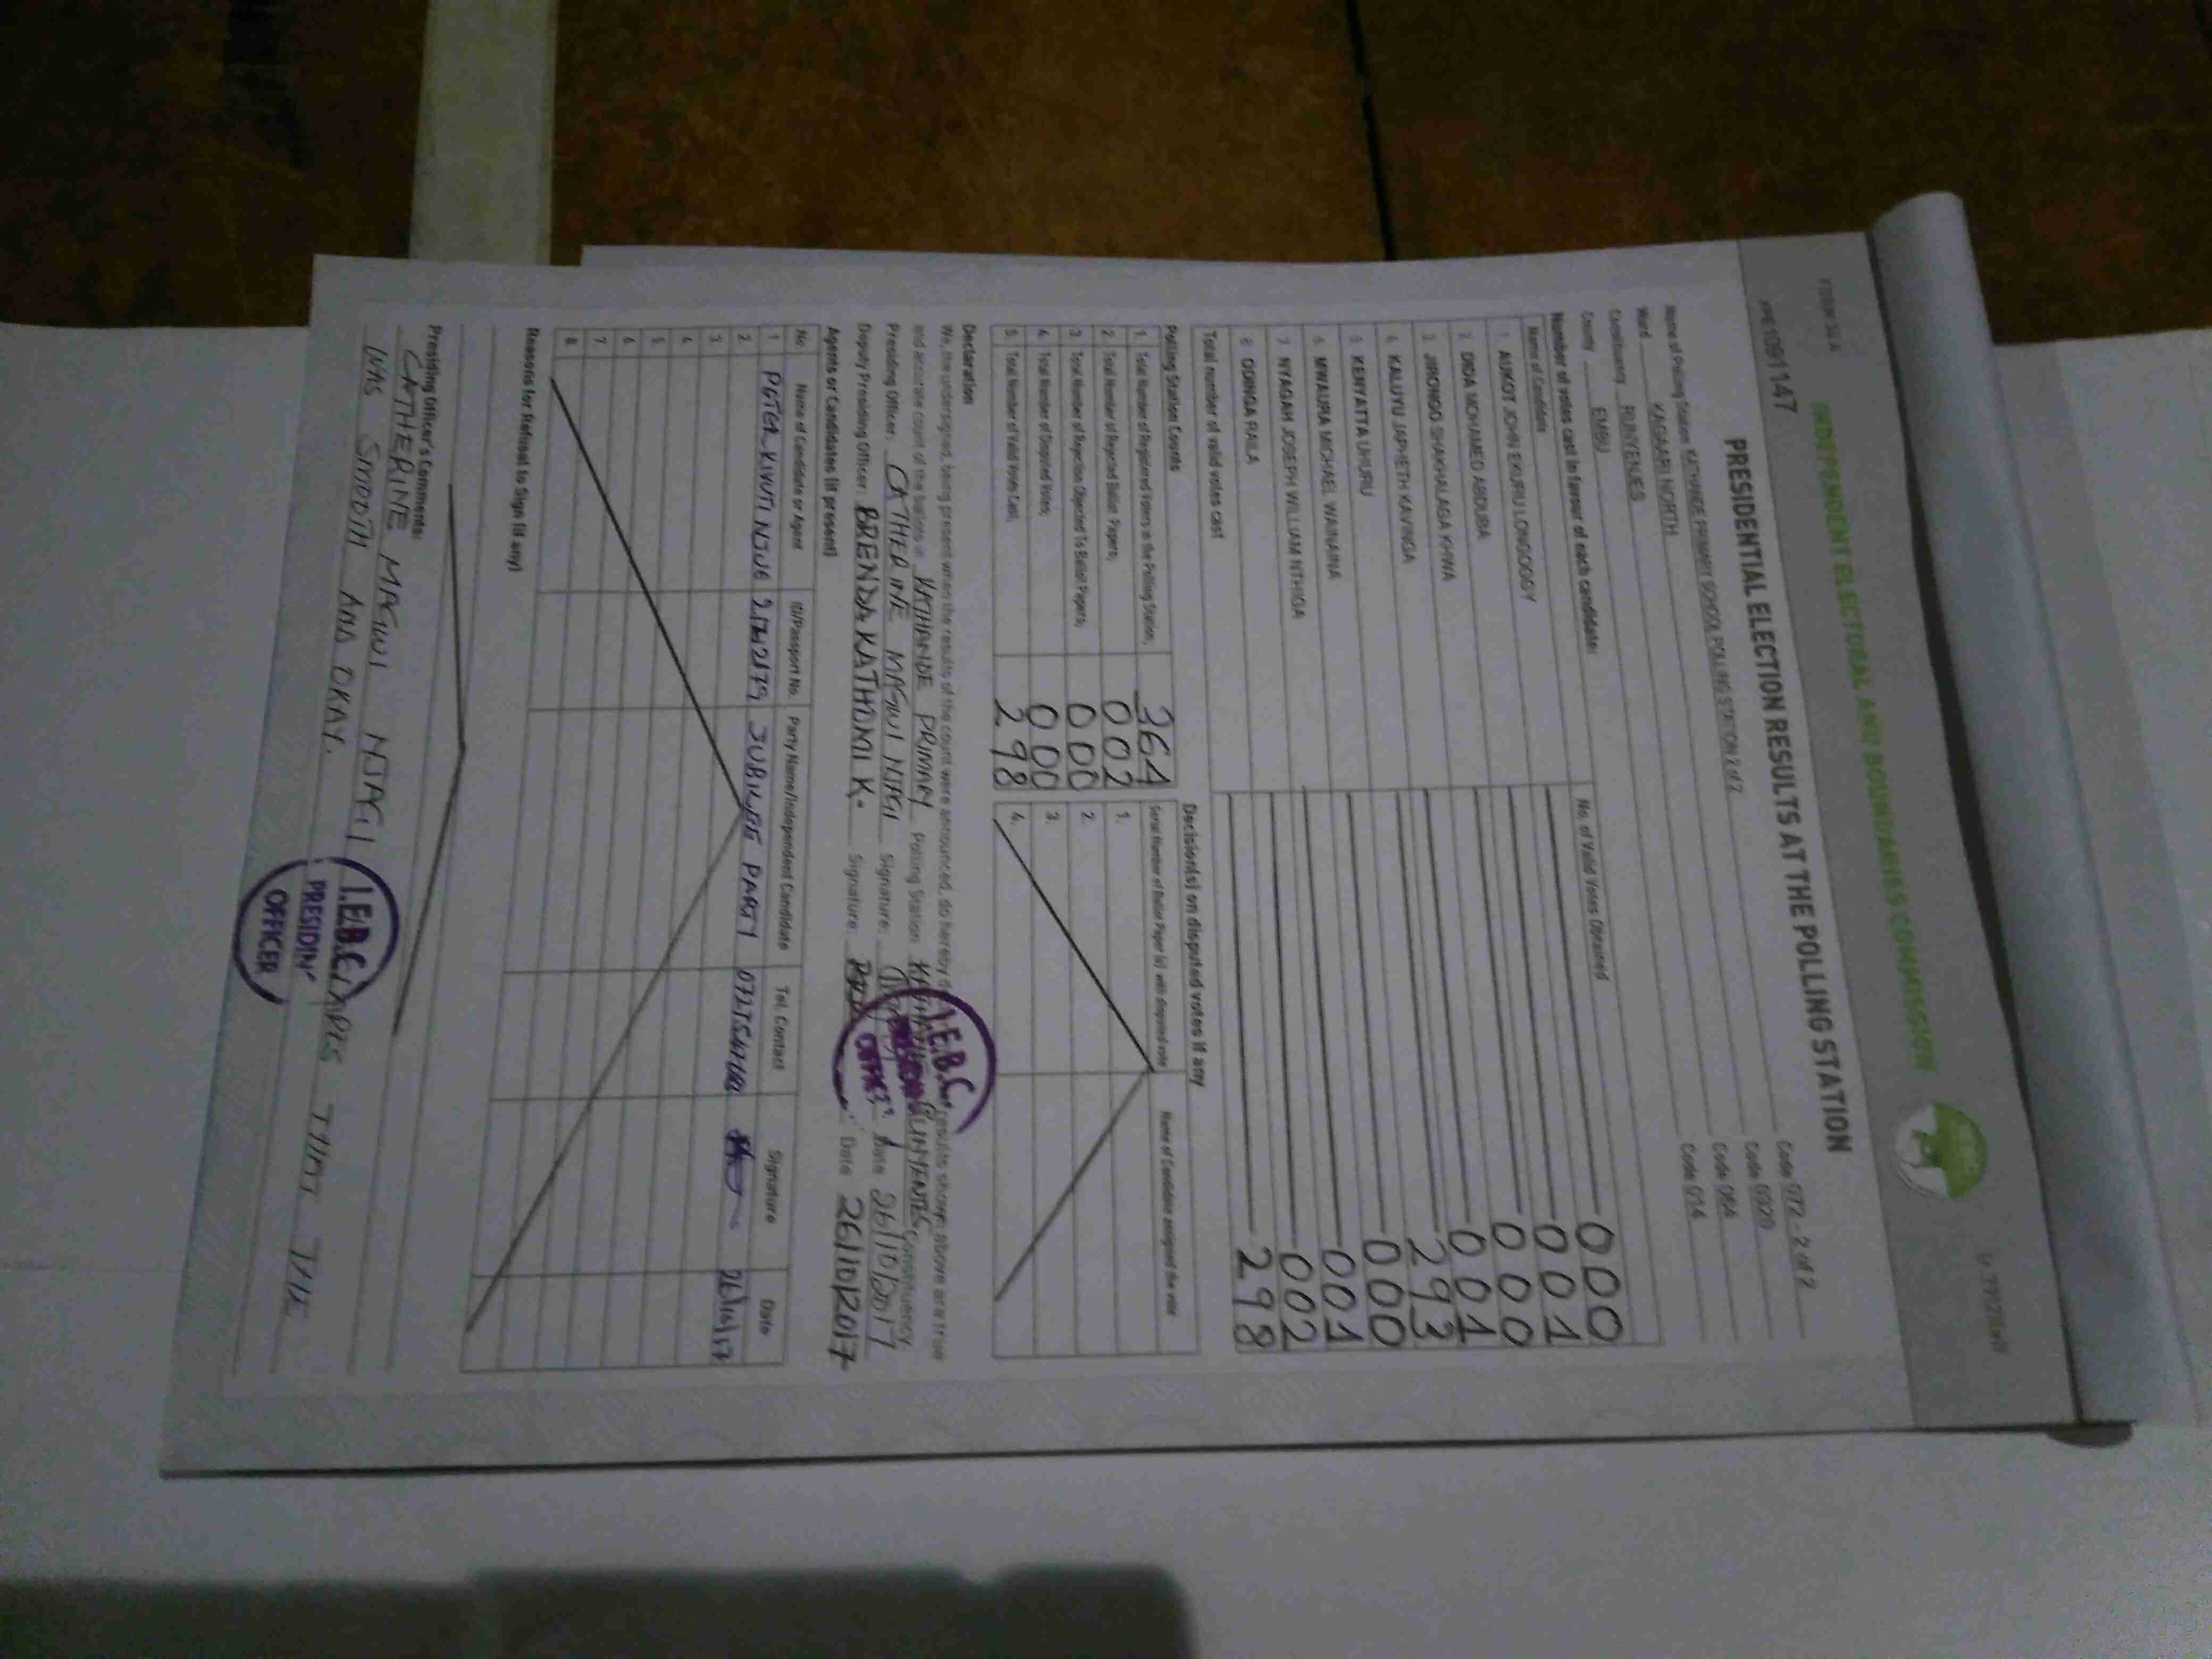 FORM 34 A
INDEPENDENT ELECTORAL AND BOUNDARIES COMMISSION
PRESIDENTIAL ELECTION RESULTS AT THE POLLING STATION
Name of Polling Station KATHANDE PRIMARY SCHOOL POLLING STATION 2 of 2 Code 072 - 2 of 2
Ward KAGAARI NORTH Code 0320
Constituency RUNYENJES Code 064
County EMBU Code 014
Number of votes cast in favour of each candidate:
Name of Candidate No. of Valid Votes Obtained
1. AUKOT JOHN EKURU LONGOGGY 000
2. DIDA MOHAMED ABDUBA 001
3. JIRONGO SHAKHALAGA KHWA 000
4. KALUYU JAPHETH KAVINGA 001
5. KENYATTA UHURU 293
6. MWAURA MICHAEL WAINAINA 000
7. NYAGAH JOSEPH WILLIAM NTHIGA 001
8. ODINGA RAILA 002
Total number of valid votes cast 298
Polling Station Counts
1. Total Number of Registered Voters in the Polling Station; 361
2. Total Number of Rejected Ballot Papers; 002
3. Total Number of Rejection Objected To Ballot Papers; 000
4. Total Number of Disputed Votes; 000
5. Total Number of Valid Votes Cast; 298
Decision(s) on disputed votes if any
Serial Number of Ballot Paper (s) with disputed vote Name of Candidate assigned the vote
1.
2.
3.
4.
Declaration
We, the undersigned, being present when the results of the count were announced, do hereby results shown above are a true
and accurate count of the ballots in KATHANDE PRIMARY Polling Station RUNYENJES Constituency
Presiding Officer: CATHERINE MAGWI NJAGI Signature: Date 26/10/2017
Deputy Presiding Officer: BRENDA KATHOMI K. Signature: Date 26/10/2017
Agents or Candidates (if present)
No. Name of Candidate or Agent ID/Passport No. Party Name/Independent Candidate Tel. Contact Signature Date
1 PETER KIVUTI NJUE JUBILEE PARTY 26/10/17
2.
3
4
5.
6
7.
8.
Reasons for Refusal to Sign (if any)
Presiding Officer's Comments:
CATHERINE MAGWI NJAGI THAT THE
WAS SMOOTH AND OKAY.
I.E.B.C.
PRESIDING
OFFICER
I.E.B.C.
OFFICER